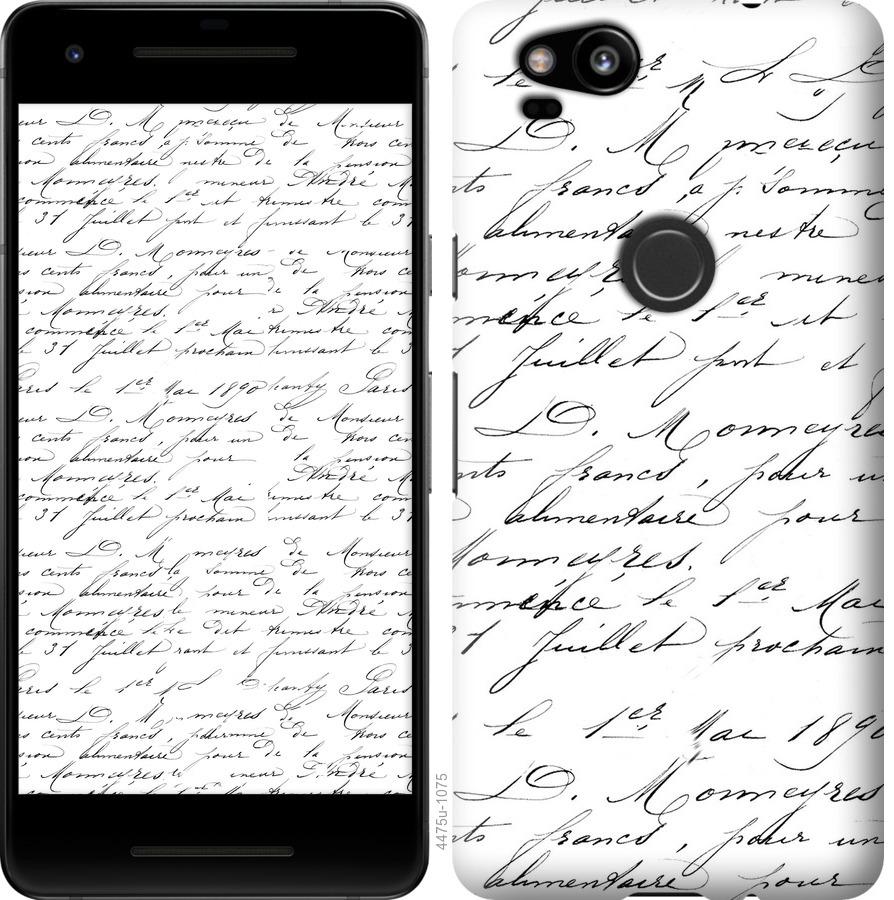 eur D. M de Monsieur
cents francs, a p. Somme de trois ce
ion alimentaire nestre de la pension
Monneyres. mineur André M
commence le 1er et trimestre com
le 31 Juillet port et finissant le 31
sieur D. Monneyres de Monsieur
s cents francs, pour un de trois ce
sion alimentaire pour de la pension
Monneyres. André M
commence le 1er Mai trimestre com
le 31 Juillet prochain finissant le 3
Paris le 1er Mai 1890 Paris
eur D. Monneyres de Monsieur
cents francs, pour un de trois ce
on alimentaire pour la pension
Monneyres. André
commence le 1er Mai trimestre com
31 Juillet prochain le 31
sieur D. M de Monsieur
s cents francs la Somme de trois ce
sion alimentaire, pour de la pension
Monneyres le mineur André M
commence trimestre com
le 31 Juillet et finissant le 31
Paris le 1er Paris
eur D. M de Monsieur
cents francs, de trois ce
ion alimentaire pour de la pension
Monneyres ineur André M
4475u-1075
le
D. M
nts francs, a p. Somme
alimenta nestre
onneyre mineu
mmence le 1er et
Juillet port et
D. Monneyres
nts francs, pour u
alimentaire pour
Monneyres.
mmence le 1er Mai
31 Juillet prochain
le 1er Mai 1890
D. Monneyres
nts francs, pour un
alimentaire pour